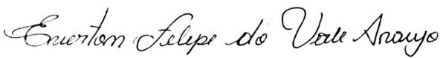 Everton Felipe do Vale Araujo